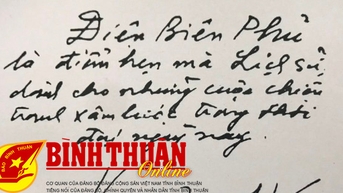 Điện Biên Phủ
là điểm hẹn mà Lịch sử
dành cho những cuộc chiến
tranh xâm lược trong thời
đại ngày nay.
BÁO BÌNH THUẬN
BÌNH THUẬN
Online
CƠ QUAN CỦA ĐẢNG BỘ ĐẢNG CỘNG SẢN VIỆT NAM TỈNH BÌNH THUẬN
TIẾNG NÓI CỦA ĐẢNG BỘ, CHÍNH QUYỀN VÀ NHÂN DÂN TỈNH BÌNH THUẬN